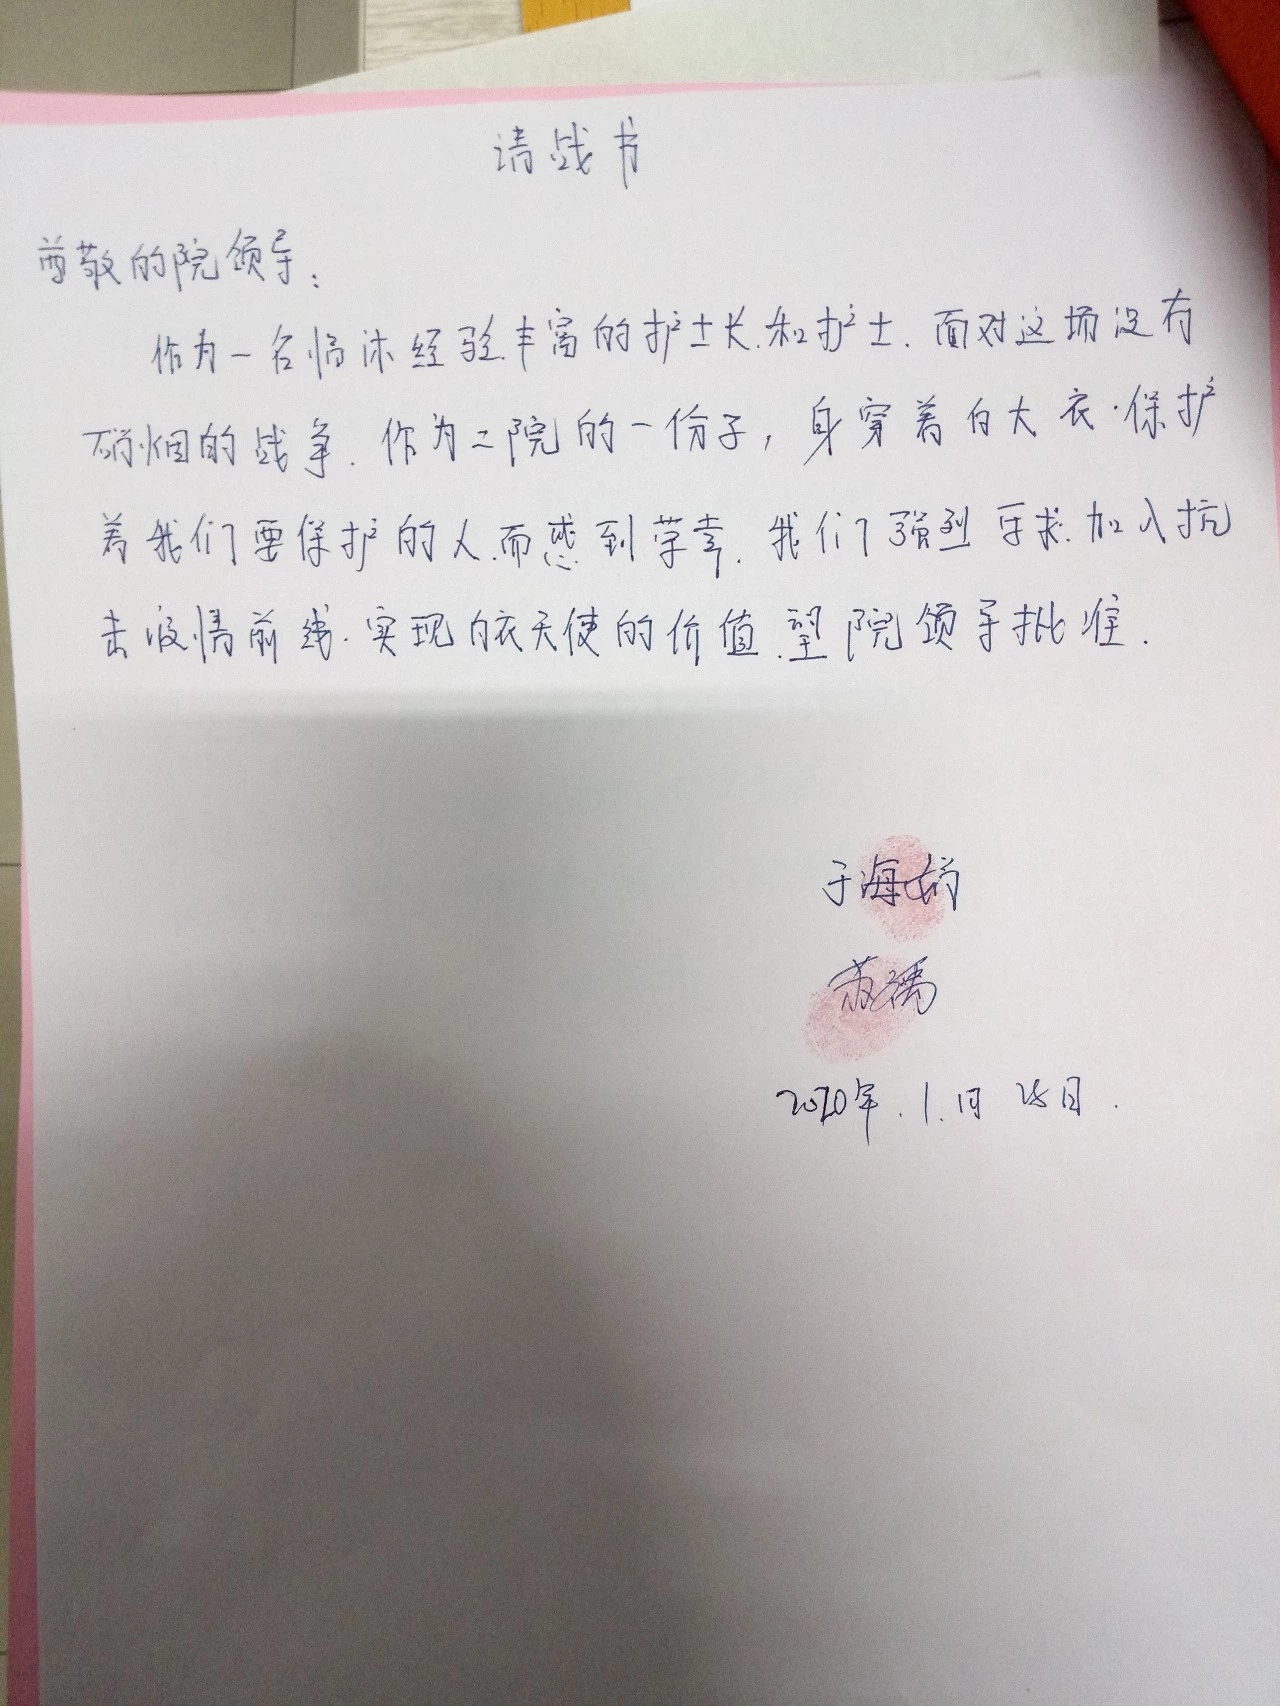 请战书
尊敬的院领导：
作为一名临床经验丰富的护士长.和护士.面对这场没有
硝烟的战争.作为二院的一份子，身穿着白大衣.保护
着我们要保护的人.而感到荣幸.我们强烈要求.加入抗
击疫情前线.实现白衣天使的价值.望院领导批准.
于海娟
苏
2020年.1.月28日.